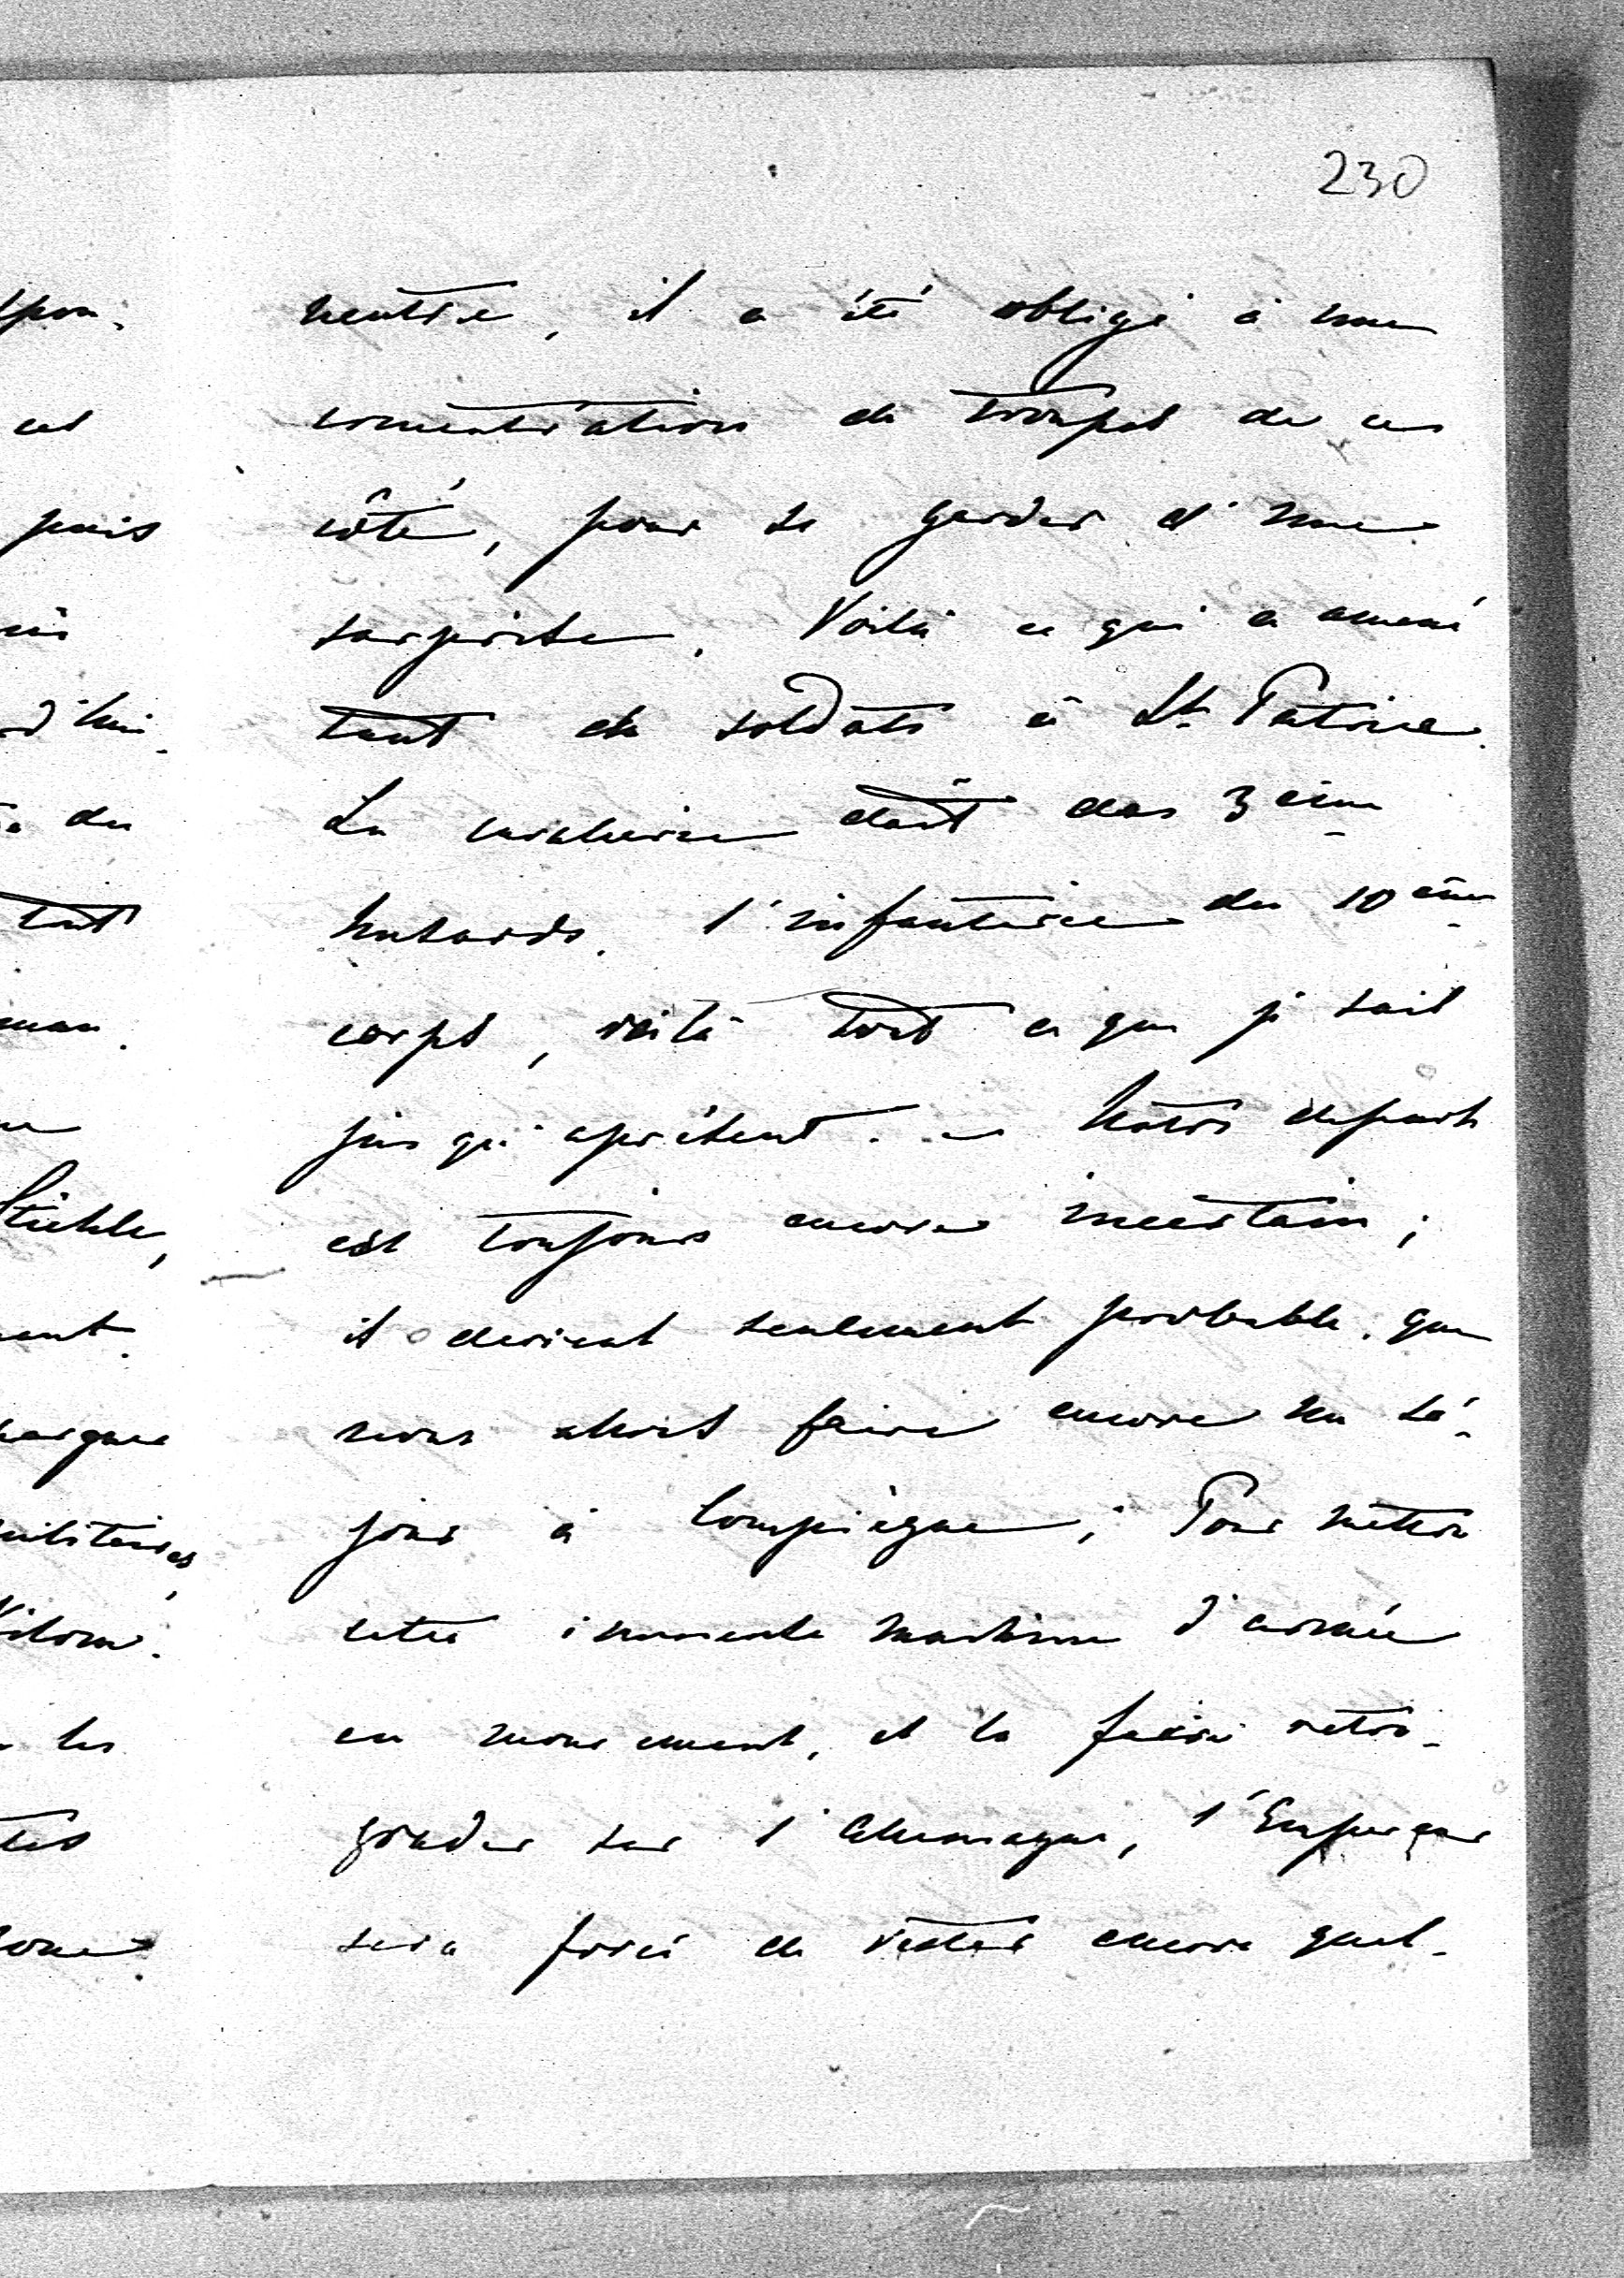 230
neutre, il a été obligé à une
concentration de troupes de ce
côté, pour se garder d'une
surprise. Voilà ce qui a amené
tant de soldats à St. Patrice.
La cavalerie était des 3ème
husards. l'infanterie du 10ème
corps, voilà tout ce que je sais
jusqu'aprésent. – Notre départ
est toujours encore incertain;
il devient seulement probable, que
nous allons faire encore un sé-
jour à Compiègne; Pour mettre
cette immense machine d'armée
en mouvement, et la faire rétro-
grader sur l'Allemagne, l'Empereur
sera forcé de rester encore quel-